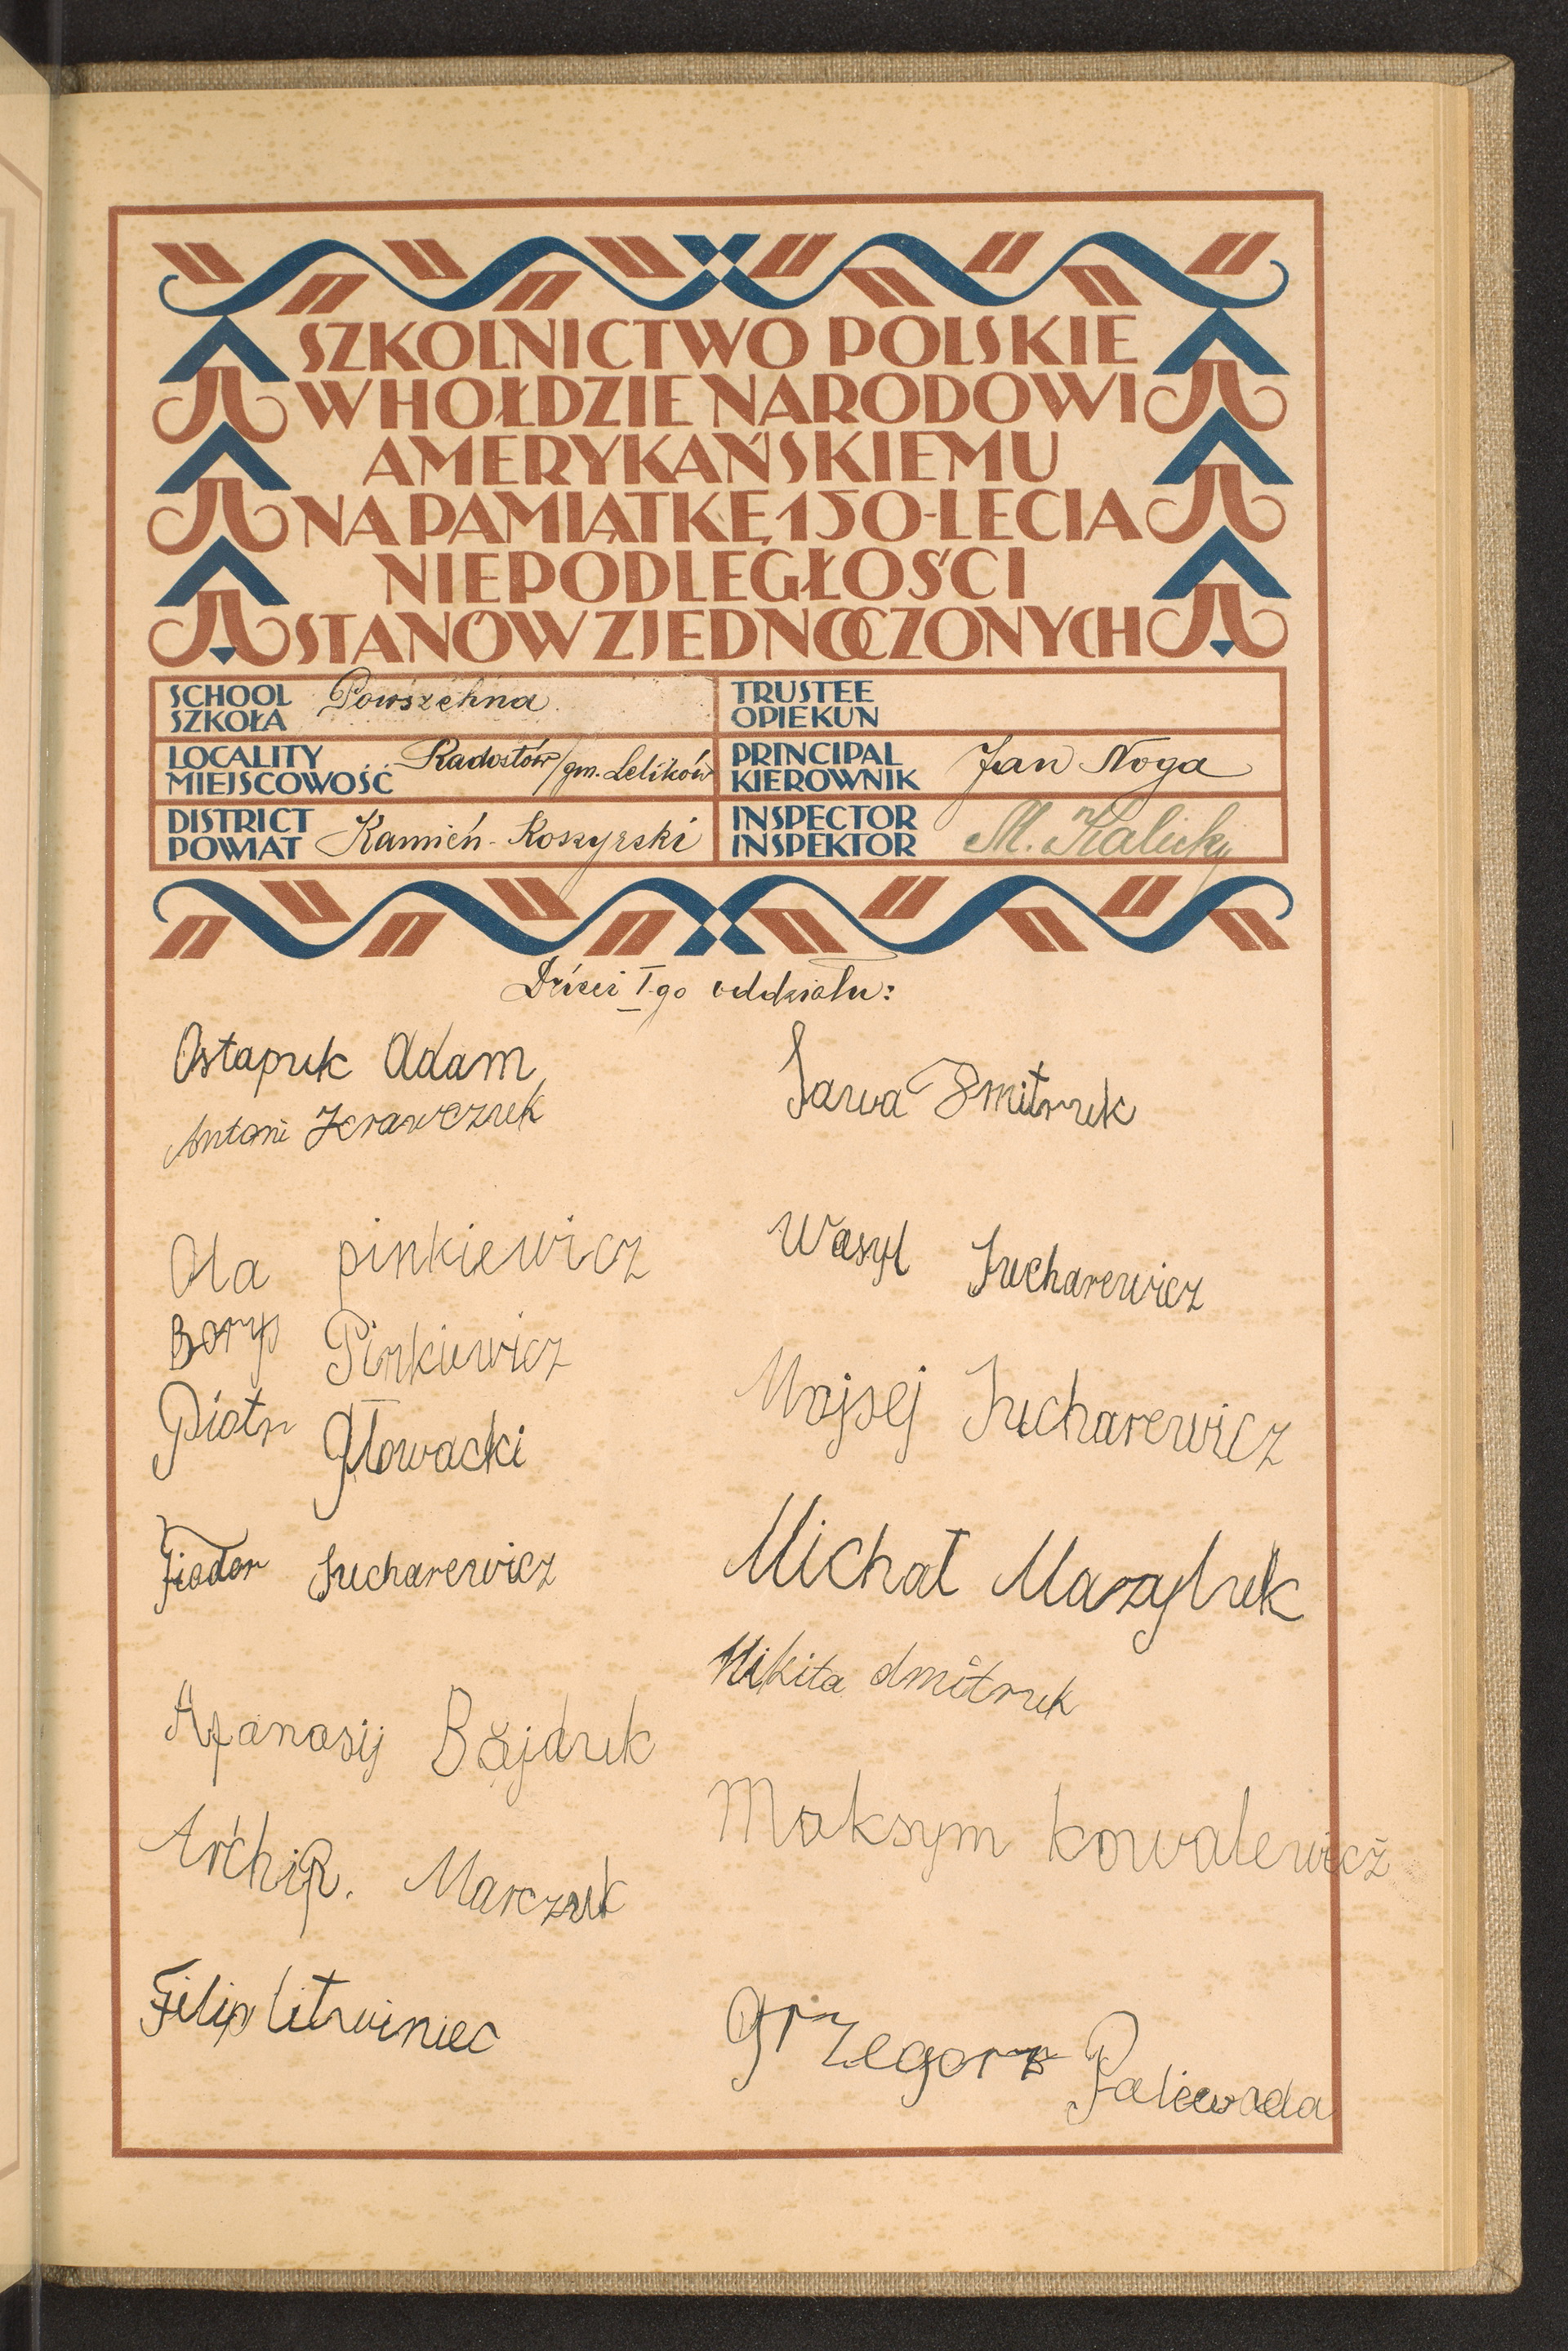 SZKOLNICTWO POLSKIE
W HOŁDZIE NARODOWI
AMERYKAŃSKIEMU
NA PAMIĄTKĘ 150-LECIA
NIEPODLEGŁOŚCI
STANÓW ZJEDNOCZONYCH
SCHOOL
SZKOŁA Powszechna
TRUSTEE
OPIEKUN
LOCALITY
MIEJSCOWOŚĆ Radostów/gm. Lelików
PRINCIPAL
KIEROWNIK Jan Noga
DISTRICT
POWIAT Kamień-Koszyrski
INSPECTOR
INSPEKTOR M. Kalicky
Dzieci I-go oddziału:
Ostapuk Adam
Antoni
Ola pinkiewicz
Borys Pinkiewicz
Piotr Głowacki
Fiodor Sucharewicz
Afanasij Bajduk
Archip. Marczuk
Filip Litwiniec
Sawa Dmitruk
Wasyl Sucharewicz
Mojsej Sucharewicz
Michał Mazyluk
Nikita dmitruk
Maksym kowalewicz
Grzegorz